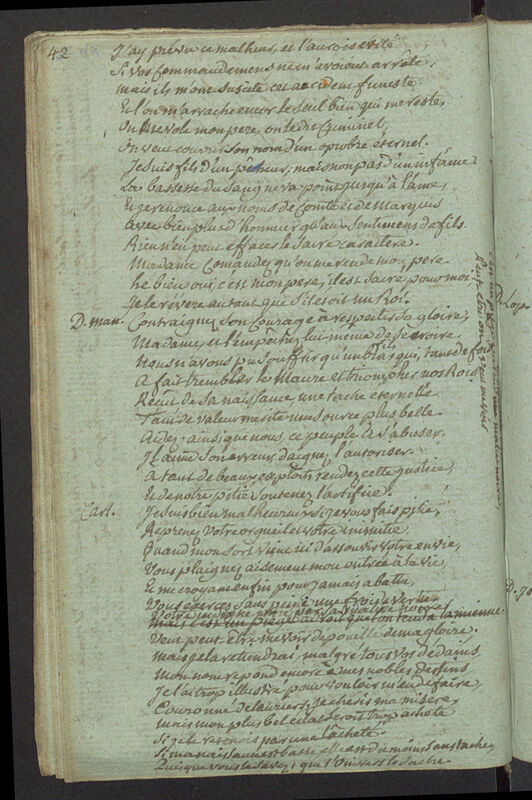 42
J'ay prévu ce malheur, et l'aurois evité
Si vos Commandemens ne m'avoient arreté,
mais ils m'ont suscité cet accident funeste
Et l'on m'arrache encor le seul bien qui me reste,
On me vole mon pere, on le dit Criminel,
On veut couvrir son nom d'un oprobre eternel.
Je suis fils d'un pêcheur, mais non pas d'un infâme,
La bassesse du sang ne va point jusqu'à l'ame,
Et je renonce aux noms de Comte et de Marquis
avec bien plus d'honneur qu'aux Sentimens de fils.
Rien n'en peut effacer le Sacré caractère.
Madame Comandez qu'on me rende mon pere
hé bien oui, c'est mon pere, il est Sacré pour moi
Je le révére autant que s'il etoit un Roi.
D. man. Contraignez son Courage à respecter sa gloire,
Madame, et l'empêchez lui même de se croire.
Nous n'avons pu Souffrir qu'un bras qui tant de fois
A fait trembler le Maure et triompher nos Rois,
Reçut de sa naissance une tache eternelle
Tant de valeur merite une source plus belle
Aidez, ainsi que nous, ce peuple à s'abuser.
Il aime son erreur daignez l'autoriser.
A tant de beaux exploits rendez cette justice,
Et de notre pitié soutenez l'artifice.
Carl. Je suis bien malheureux si je vous fais pitié,
Reprenez votre orgueil et votre inimitié
Quand mon sort vient ici d'assouvir votre envie,
Vous plaignez aisement mon entrée à la vie,
Et me croyant enfin pour jamais abatu,
Vous exercez sans peine une froide vertu
Veut peut être me voir depouillé de ma gloire.
mais je la retiendrai, malgré tous vos dedains
Mon nom repond encore à mes nobles desseins
Je l'ai trop illustré pour vouloir m'en défaire,
Couronné de lauriers, je cheris ma misère,
mais mon plus bel eclat seroit trop acheté
Si je le recevois par une lâcheté.
Si ma naissance est basse, elle est du moins sans tache,
Puisque vous le savez, que l'Univers le sache.
D. Lope